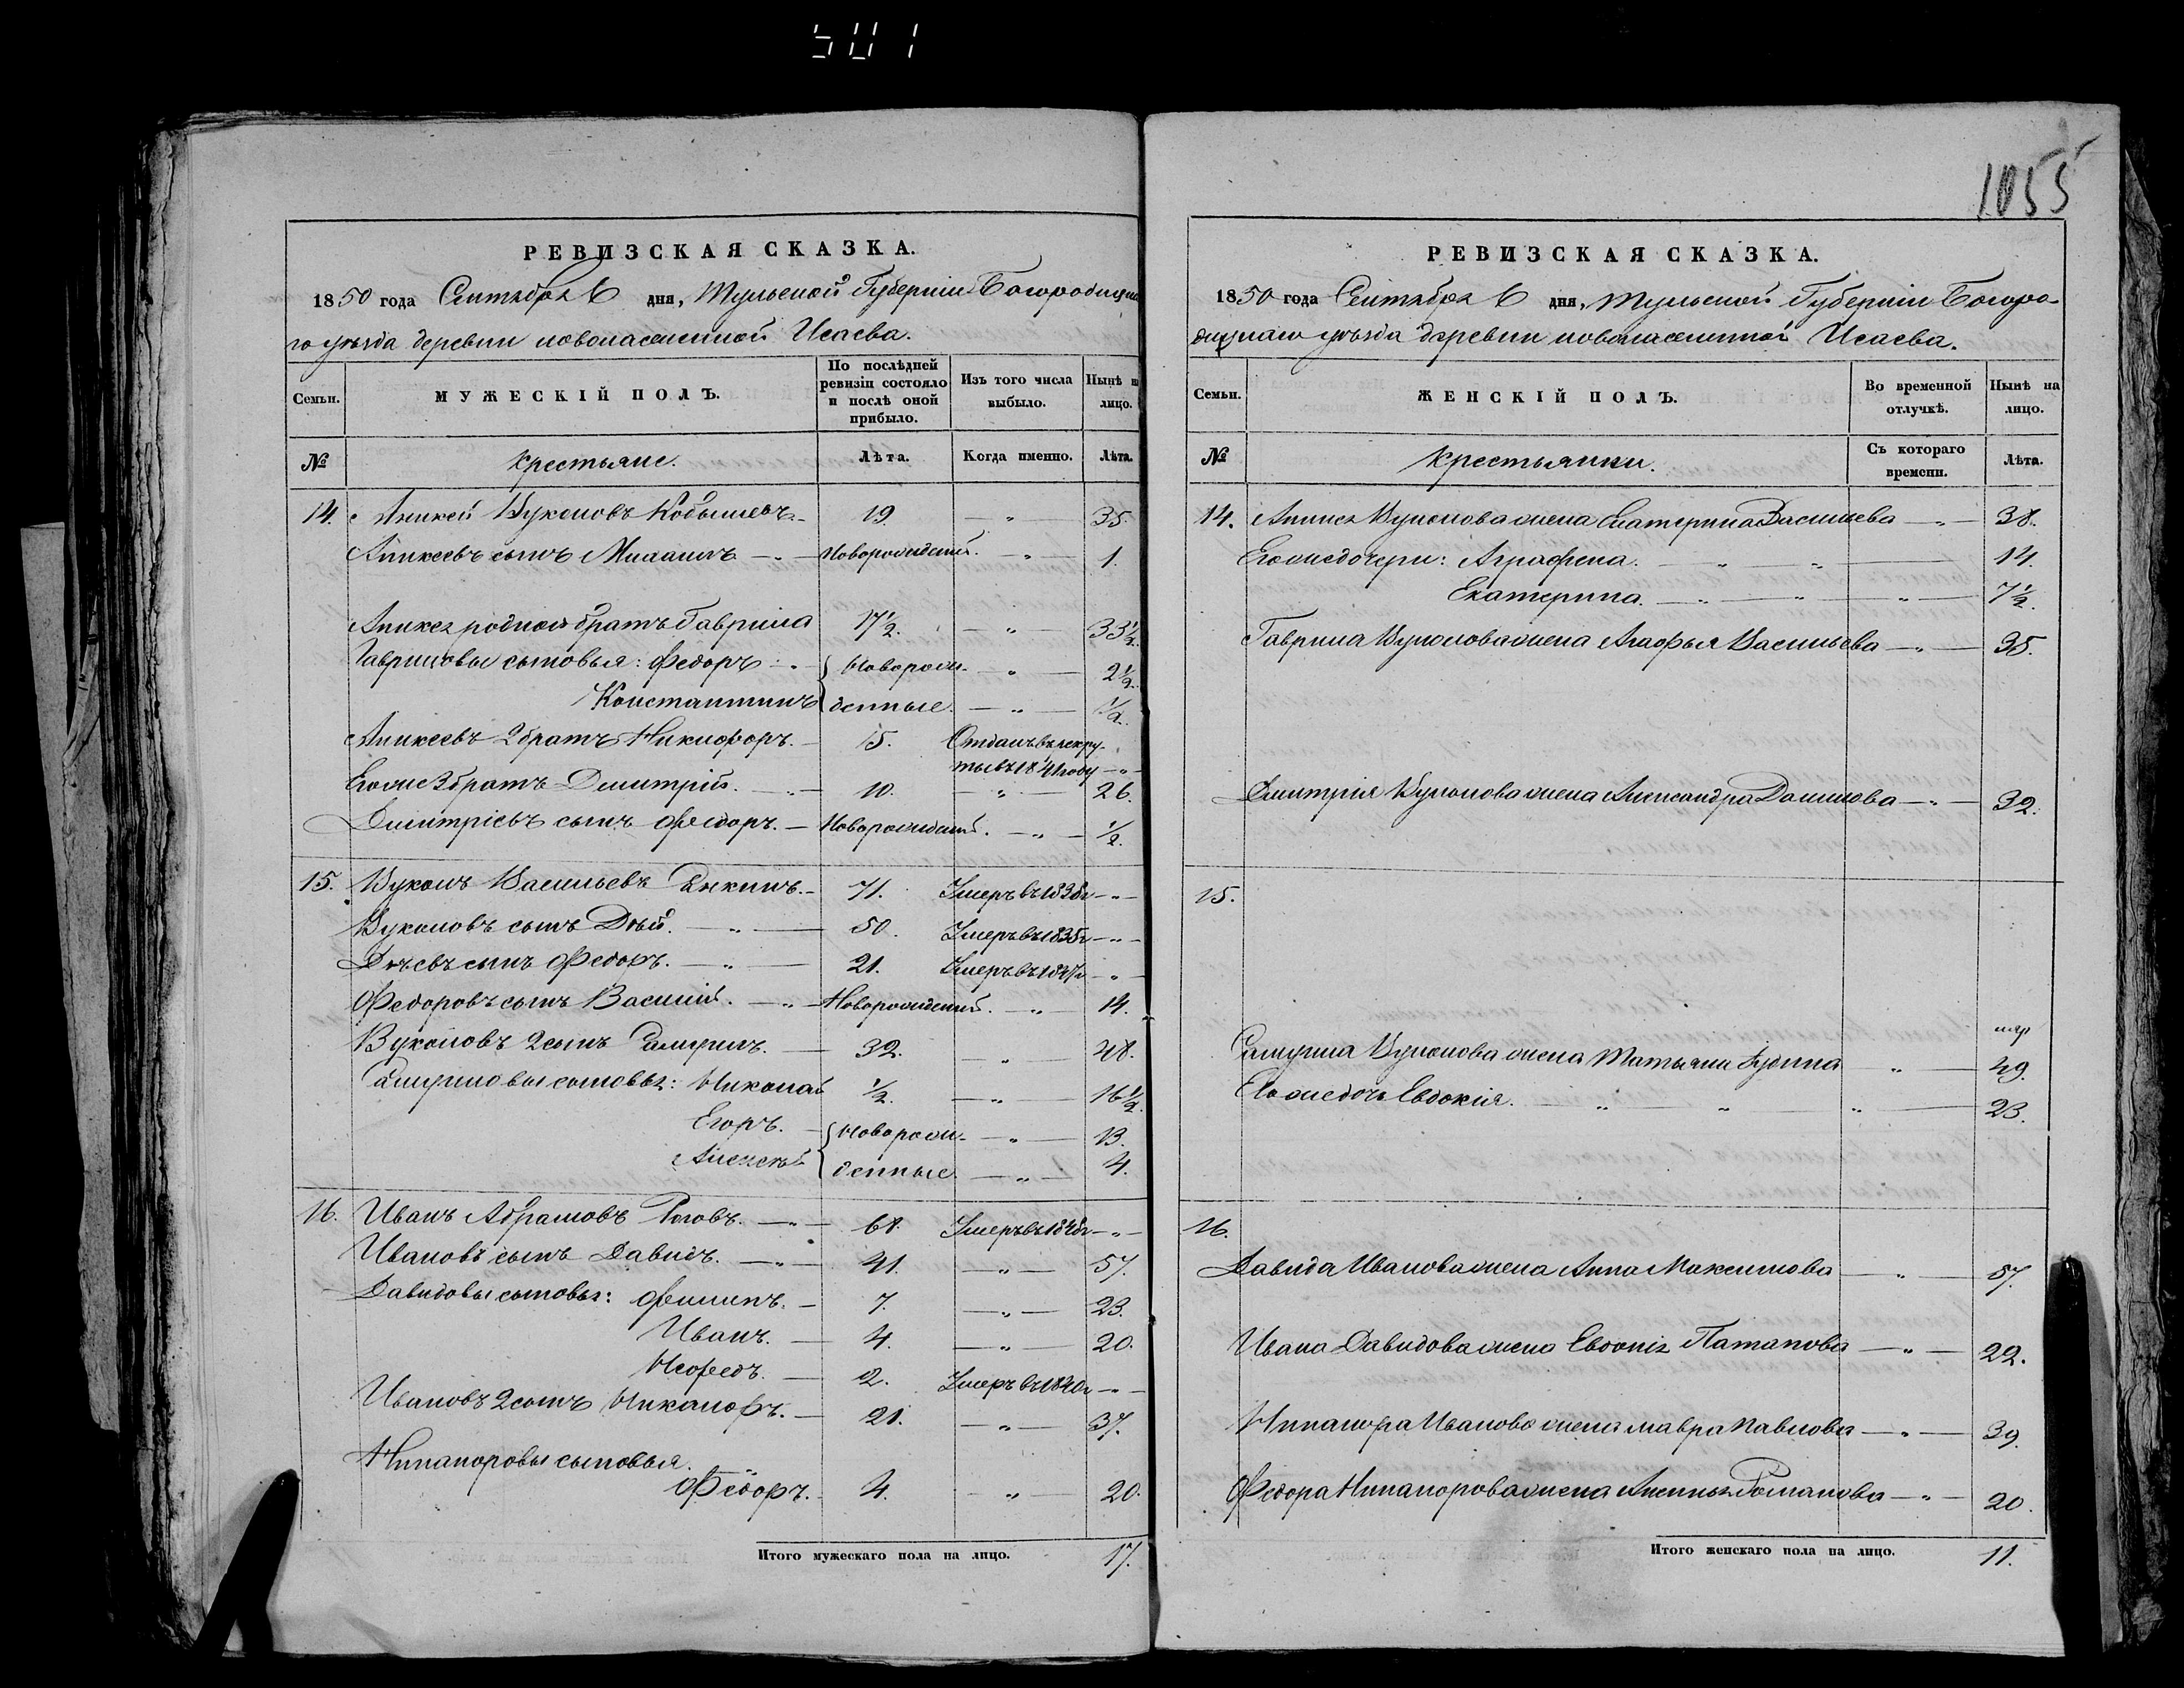 501
1055
РЕВИЗСКАЯ СКАЗКА.
1850 года Сентября 6 дня, Тульской Губернiи Богородицка
го уѣзда деревни новонаселенной Исаева.
Семьи. МУЖЕСКIЙ ПОЛЪ. По послѣдней ревизiи состояло и послѣ оной прибыло. Изъ того числа выбыло. Нынѣ на лицо.
№ Крестьяне. Лѣта. Когда именно. Лѣта.
14. Аникей Вуколовъ Кобылевъ 19. — „ — 35.
Аникеевъ сынъ Михаилъ — Новорожденный. — „ — 1.
Аникея родной братъ Гаврила 17½. — „ — 33½.
Гавриловы сыновья: Федоръ Новорож- — „ — 2½.
Константинъ денные. — „ — ½.
Аникеевъ 2 братъ Никифоръ. — 15. Отданъ въ рекру-
ты въ 1841 году — „ —
Его же 3 братъ Дмитрiй. — 10. — „ — 26.
Дмитрiевъ сынъ Федоръ. — Новорожденный. — „ — ½.
15. Вуколъ Васильевъ 71. Умеръ въ 1838 г — „ —
Вуколовъ сынъ Дѣй. — „ — 50. Умеръ въ 1835 г — „ —
Дѣевъ сынъ Федоръ. — „ — 21. Умеръ въ 1847 г — „ —
Федоровъ сынъ Василiй. — „ — Новорожденный. — „ — 14.
Вуколовъ 2 сынъ Самуилъ. — 32. — „ — 48.
Самуиловы сыновья: Николай ½. — „ — 16½.
Егоръ. — Новорож- — „ — 13.
Алексѣй денные — „ — 4.
16. Иванъ Абрамовъ Роговъ. — „ — 68. Умеръ въ 1848 г — „ —
Ивановъ сынъ Давидъ. — „ — 41. — „ — 57.
Давидовы сыновья: Филипъ. — 7. — „ — 23.
Иванъ. — 4. — „ — 20.
Нефедъ. — 2. Умеръ въ 1840 г — „ —
Ивановъ 2 сынъ Никаноръ. — 21. — „ — 37.
Никаноровы сыновья.
Федоръ. 4. — „ — 20.
Итого мужескаго пола на лицо. 17.
РЕВИЗСКАЯ СКАЗКА.
1850 года Сентября 6 дня, Тульской Губернiи Богоро-
дицкаго уѣзда деревни новонаселенной Исаева.
Семьи. ЖЕНСКIЙ ПОЛЪ. Во временной отлучкѣ. Нынѣ на лицо.
№ Крестьянки. Съ котораго времени. Лѣта.
14. Аникея Вуколова жена Екатерина Васильева — „ — 38.
Его же дочери: Аграфена. — „ — „ — 14.
Екатерина. — „ — „ — „ — 7½.
Гаврила Вуколова жена Агафья Васильева — „ — 35.
Дмитрiя Вуколова жена Александра Данилова — „ — 32.
15.
Самуила Вуколова жена Татьяна „ — 49.
Его же дочь Евдокiя. — „ — „ — „ — 23.
16.
Давида Иванова жена Анна Максимова — „ — 57.
Ивана Давидова жена Евдокiя Патапова — „ — 22.
Никанора Иванова жена Мавра Павлова — „ — 39.
Федора Никанорова жена Романова — „ — 20.
Итого женскаго пола на лицо. 11.